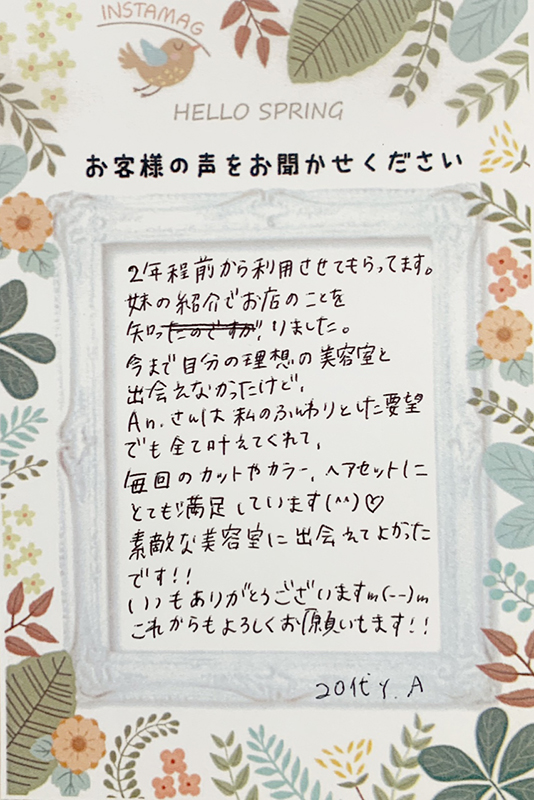 INSTAMAG
HELLO SPRING
お客様の声をお聞かせください
2年程前から利用させてもらってます。
妹の紹介でお店のことを
知ったのですが、りました。
今まで自分の理想の美容室と
出会えなかったけど、
An.さんは私のふんわりとした要望
でも全て叶えてくれて、
毎回のカットやカラー、ヘアセットに
とても満足しています(^^)♡
素敵な美容室に出会えてよかった
です!!
いつもありがとうございますm(--)m
これからもよろしくお願いします!!
20代 Y. A